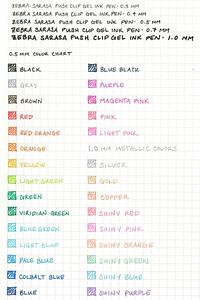 ZEBRA SARASA PUSH CLIP GEL INK PEN - 0.3 MM
ZEBRA SARASA PUSH CLIP GEL INK PEN - 0.4 MM
ZEBRA SARASA PUSH CLIP GEL INK PEN - 0.5 MM
ZEBRA SARASA PUSH CLIP GEL INK PEN - 0.7 MM
ZEBRA SARASA PUSH CLIP GEL INK PEN - 1.0 MM
0.5 MM COLOR CHART
BLACK
GRAY
BROWN
RED
RED ORANGE
ORANGE
YELLOW
LIGHT GREEN
GREEN
VIRIDIAN GREEN
BLUE GREEN
LIGHT BLUE
PALE BLUE
COBALT BLUE
BLUE
BLUE BLACK
PURPLE
MAGENTA PINK
PINK
LIGHT PINK
1.0 MM METALLIC COLORS
SILVER
GOLD
COPPER
SHINY RED
SHINY PINK
SHINY ORANGE
SHINY GREEN
SHINY BLUE
SHINY PURPLE